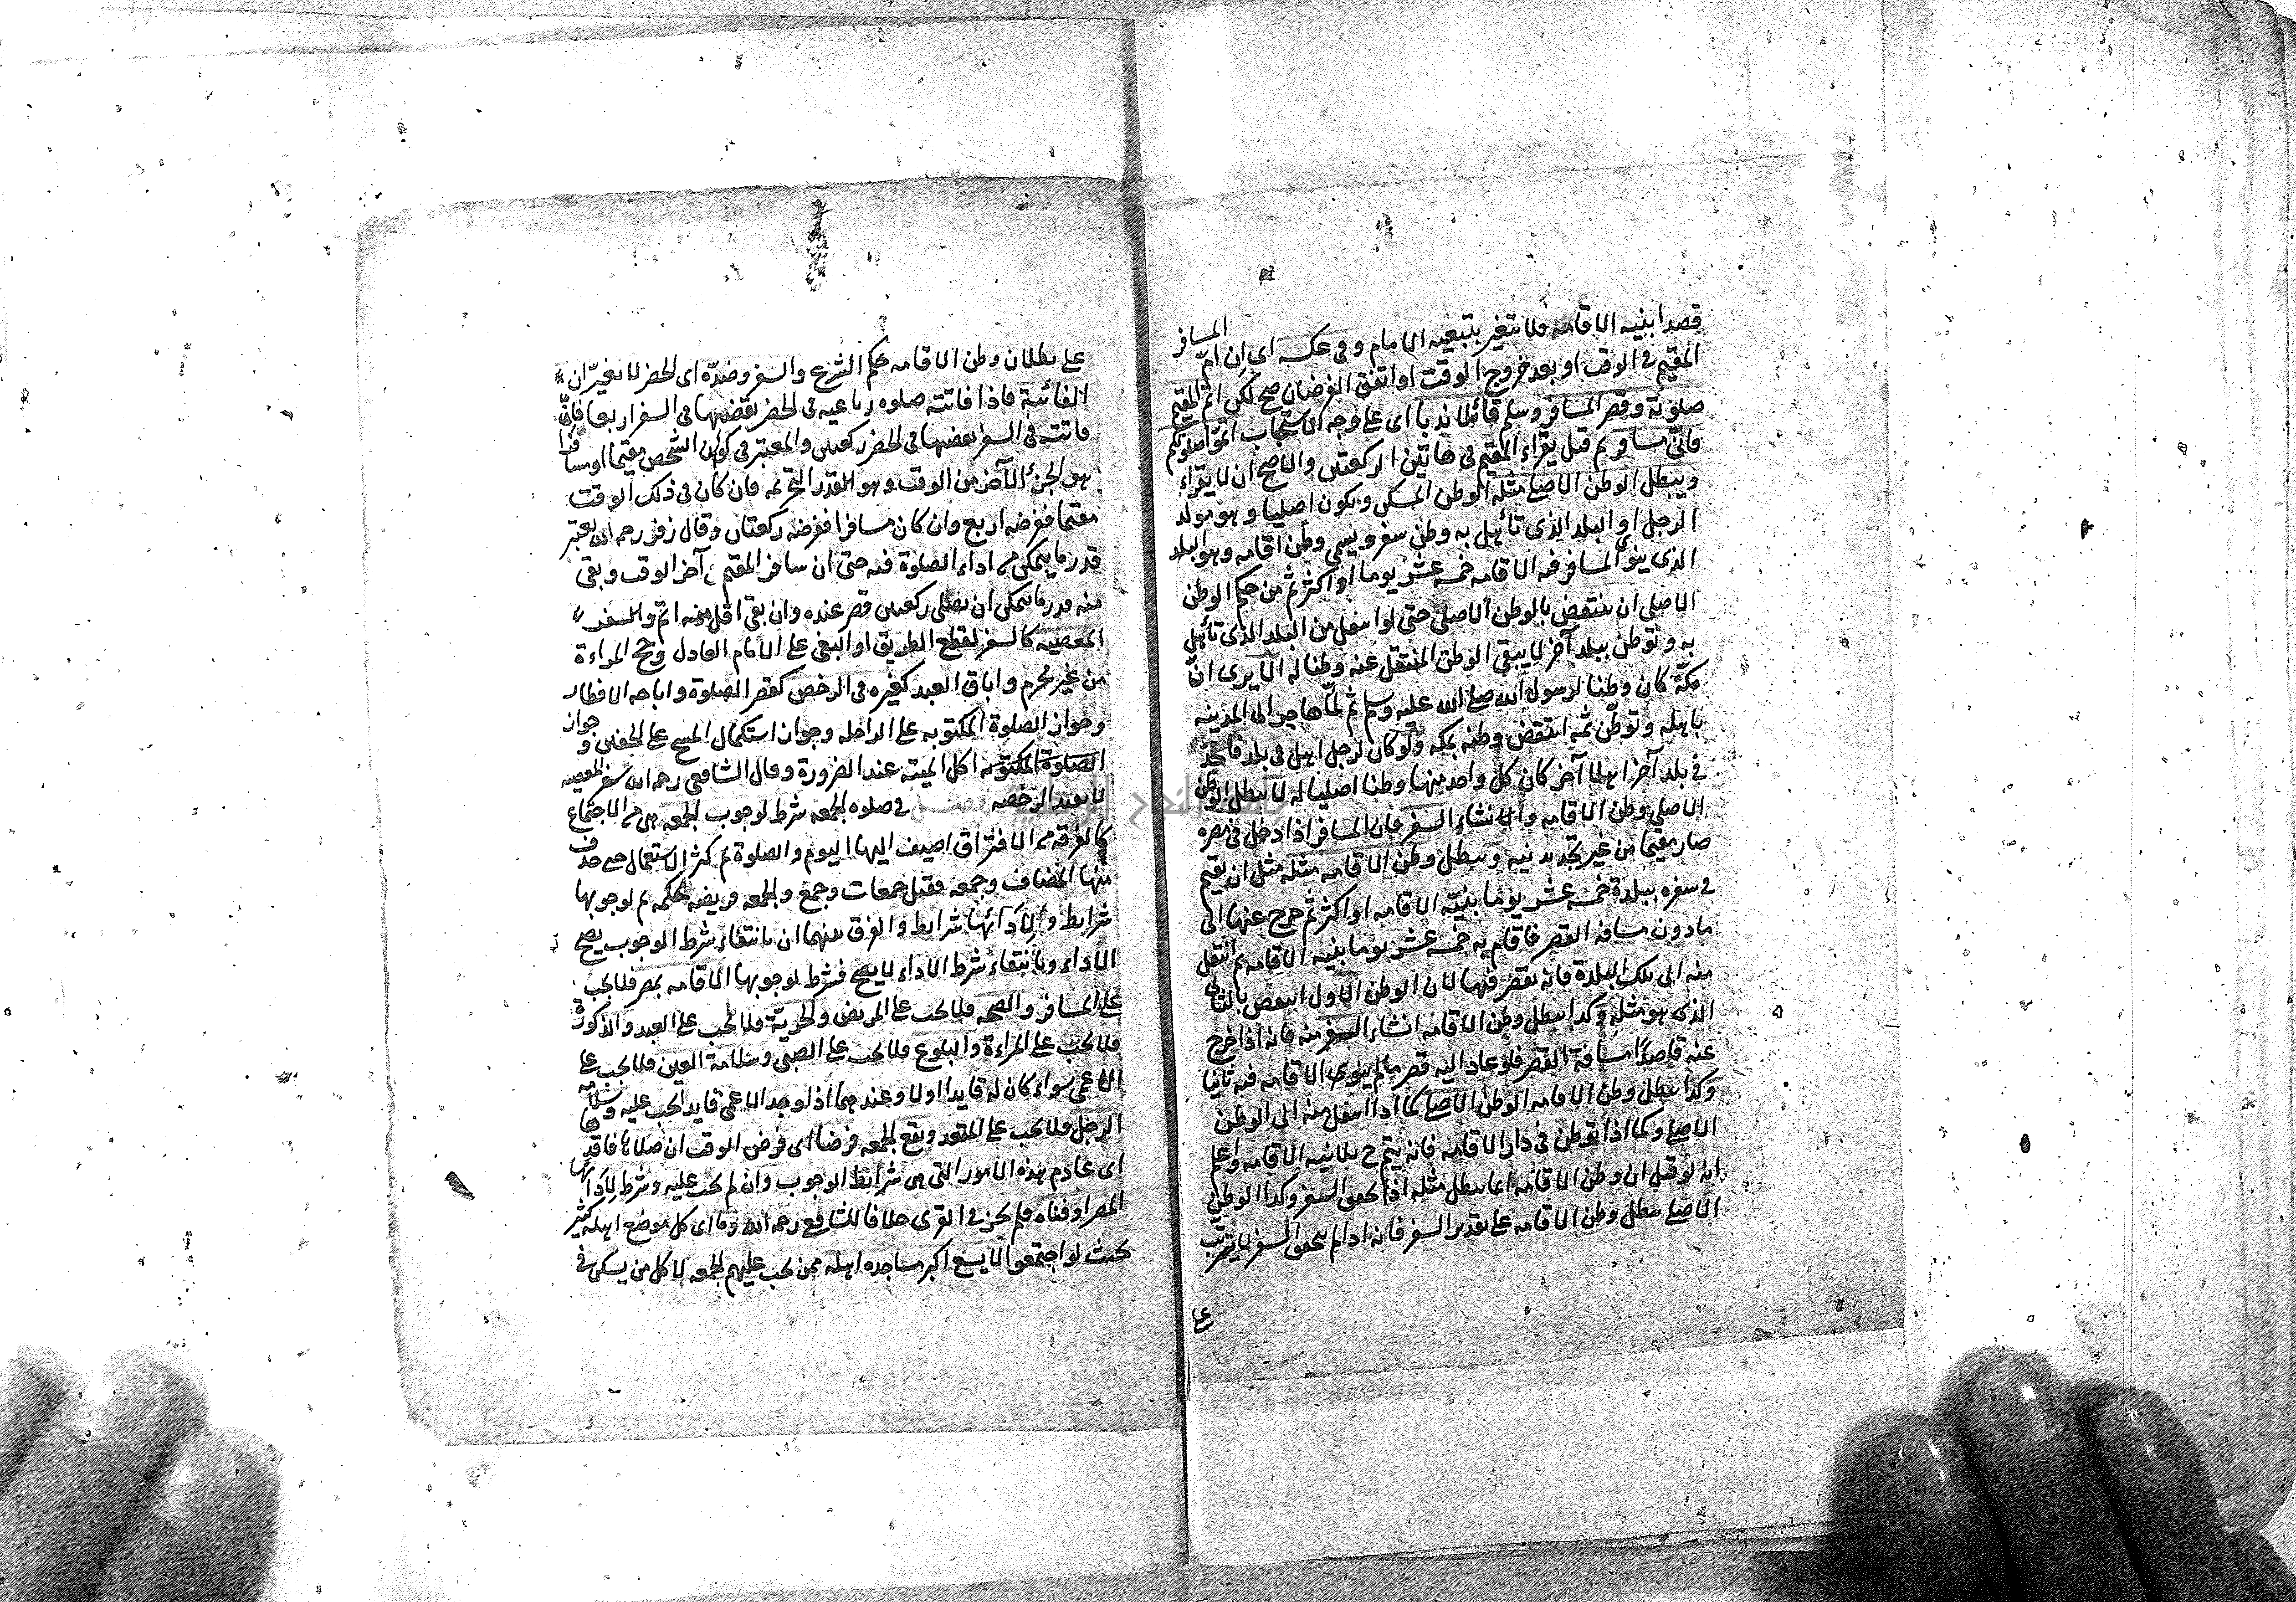 قصدا بنيه الاقامه فلا يتغير بتبعيه الامام وفى عكسه اى ان ام المسافر
المقيم فى الوقت او بعد خروج الوقت او اتفق الفرضان صح لكن اتم المقيم
صلوته وقصر المسافر وسلم قائلا ندبا اى على وجه الاستحباب اتموا صلوتكم
فانى مسافر ثم قيل يقراء المقيم فى هاتين الركعتين والاصح ان لا يقراء
ويبطل الوطن الاصلى مثله الوطن المسكن ويكون اصليا وهو مولد
الرجل او البلد الذى تأهل به وطن سفر ويسمى وطن اقامه وهو البلد
الذى ينوى المسافر فيه الاقامه خمسه عشر يوما او اكثر ثم من حكم الوطن
الاصلى ان ينتقض بالوطن الاصلى حتى لو انتقل من البلد الذى تأهل
به وتوطن ببلد آخر لا يبقى الوطن المنتقل عنه وطنا له الا يرى ان
مكة كان وطنا لرسول الله صلى الله عليه وسلم ثم لما هاجر الى المدينه
باهله وتوطن ثمه انتقض وطنه بمكه ولو كان لرجل اهل فى بلد فاتخذ
فى بلد آخر اهلا آخر كان كل واحد منهما وطنا اصليا له لا يبطل الوطن
الاصلى وطن الاقامه والانشاء السفر فان المسافر اذا دخل فى مصره
صار مقيما من غير تجديد نيه ويبطل وطن الاقامه مثله مثل ان يقيم
فى سفره ببلدة خمسه عشر يوما بنيه الاقامه او اكثر ثم خرج عنها الى
مادون مسافه القصر فاقام به خمسه عشر يوما بنيه الاقامه ثم انتقل
منه الى تلك البلدة فانه يقصر فيها لان الوطن الاول انتقض بالثانى
الذى هو مثله وكذا يبطل وطن الاقامه انشاء السفر منه فانه اذا خرج
عنه قاصدا مسافة القصر فلو عاد اليه قصر مالم ينوى الاقامه فيه ثانيا
وكذا يبطل وطن الاقامه الوطن الاصلى كما اذا انتقل منه الى الوطن
الاصلى وكما اذا توطن فى دار الاقامه فانه يتم ح بلا نيه الاقامه واعلم
انه لو قيل ان وطن الاقامه انما يبطل مثله اذا تحقق السفر وكذا الوطن
الاصلى يبطل وطن الاقامه على تقدير السفر فانه اذا لم يتحقق السفر لا يترتب
على
على بطلان وطن الاقامه حكم الشرع والسفر وضده اى الحضر لا يغيران
الفائتة فاذا فاتته صلوه رباعيه فى الحضر يقضيها فى السفر اربعا فان
فاتته فى السفر يقضيها فى الحضر ركعتين والمعتبر فى كون الشخص مقيما او مسافرا
هو الجزء الآخر من الوقت وهو القدر التحريمه فان كان فى ذلك الوقت
مقيما ففرضه اربع وان كان مسافرا ففرضه ركعتان وقال زفر رحمه الله يعتبر
قدر ما يتمكن من اداء الصلوة فيه حتى ان سافر المقيم آخر الوقت وبقى
منه قدر ما يتمكن ان يصلى ركعتين قصر عنده وان بقى اقل منه اتم والسفر
المعصيه كالسفر لقطع الطريق او البغى على الامام العادل وحج المراءة
من غير محرم واباق العبد كغيره فى الرخص كقصر الصلوة واباحه الافطار
وجواز الصلوة المكتوبه على الراحله وجواز استكمال المسح على الخفين وجواز
الصلوة المكتوبه اكل الميته عند الضرورة وقال الشافعى رحمه الله سفر المعصيه
لا يفيد الرخصه فى صلوه الجمعه شرط لوجوب الجمعه هى من الاجتماع
كالفرقه من الافتراق اضيف اليها اليوم والصلوة ثم كثر الاستعمال حتى حذف
منها المضاف وجمعه فقيل جمعات وجمع والجمعه فريضه محكمه ثم لوجوبها
شرايط ولادائها شرايط والفرق بينهما ان بانتفاء شرط الوجوب يصح
الاداء وبانتفاء شرط الاداء لا يصح فشرط لوجوبها الاقامه بمصر فلا يجب
على المسافر والصحه فلا يجب على المريض والحرية فلا يجب على العبد والذكورة
فلا يجب على المراءة والبلوغ فلا يجب على الصبى وسلامة العين فلا يجب على
الاعمى سواء كان له قايد اولا وعندهما اذا وجد الاعمى قايدا يجب عليه وسلامه
الرجل فلا يجب على المقعد ويقع الجمعه فرضا اى فرض الوقت ان صلاها فاقدها
اى عادم هذه الامور التى هى شرايط الوجوب وان لم يجب عليه وشرط لادائها
المصر او فناه فلم يجز فى القرى خلافا للشافعى رحمه الله وما اى كل موضع اهله كثير
بحيث لو اجتمعوا لا يسع اكبر مساجده اهله ممن يجب عليهم الجمعه لا كل من يسكن فى